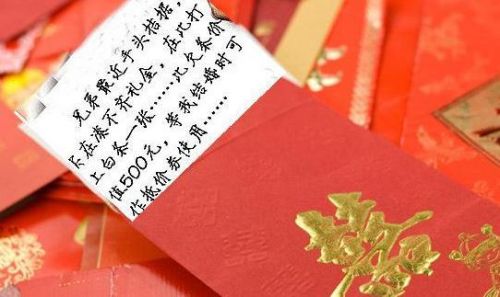 兄弟最近手头拮据，
实在凑不齐礼金，在此打
上白条一张……此欠条价
值500元，等我结婚时可
作抵价券使用……
囍